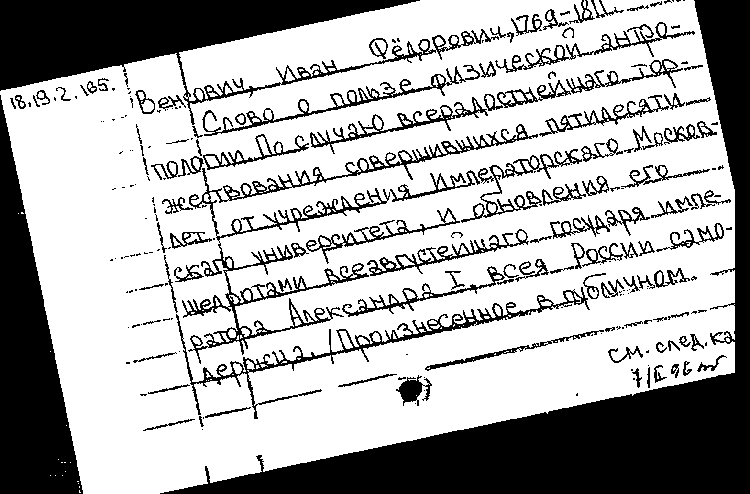 18.19.2.165.
Венсович, Иван Фёдорович, 1769-1811.
Слово о пользе физической антро-
пологии. По случаю всерадостнейшаго тор-
жествования совершившихся пятидесяти
лет от учреждения Императорскаго Москов-
скаго университета, и обновления его
щедротами всеавгустейшаго государя импе-
ратора Александра I, всея России само-
держца. /Произнесенное в публичном
см. след. ка